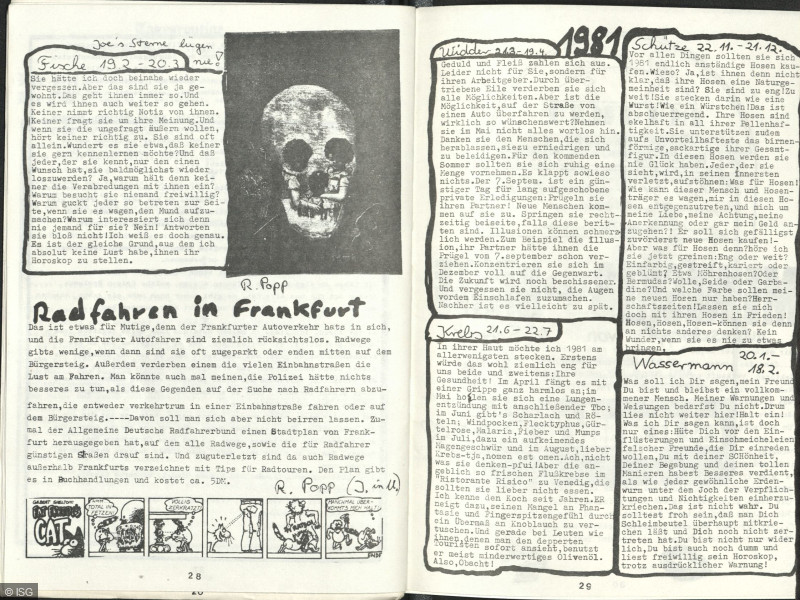 Joe's Sterne lügen nie!
Fische 19.2.-20.3.
Sie hätte ich doch beinahe wieder
vergessen.Aber das sind sie ja ge-
wohnt.Das geht ihnen immer so.Und
es wird ihnen auch weiter so gehen.
Keiner nimmt richtig Notiz von ihnen.
Keiner fragt sie um ihre Meinung.Und
wenn sie die ungefragt äußern wollen,
hört keiner richtig zu. Sie sind oft
allein.Wundert es sie etwa,daß keiner
sie gern kennenlernen möchte?Und daß
jeder,der sie kennt,nur den einen
Wunsch hat,sie baldmöglichst wieder
loszuwerden? Ja,warum hält denn kei-
ner die Verabredungen mit ihnen ein?
Warum besucht sie niemand freiwillig?
Warum guckt jeder so betreten zur Sei-
te,wenn sie es wagen,den Mund aufzu-
machen?Warum interessiert sich denn
nie jemand für sie? Nein! Antworten
sie bloß nicht!Ich weiß es doch genau.
Es ist der gleiche Grund,aus dem ich
absolut keine Lust habe,ihnen ihr
Horoskop zu stellen.
R. Popp
Radfahren in Frankfurt
Das ist etwas für Mutige,denn der Frankfurter Autoverkehr hats in sich,
und die Frankfurter Autofahrer sind ziemlich rücksichtslos. Radwege
gibts wenige,wenn dann sind sie oft zugeparkt oder enden mitten auf dem
Bürgersteig. Außerdem verderben einem die vielen Einbahnstraßen die
Lust am Fahren. Man könnte auch mal meinen,die Polizei hätte nichts
besseres zu tun,als diese Gegenden auf der Suche nach Radfahrern abzu-
fahren,die entweder verkehrtrum in einer Einbahnstraße fahren oder auf
dem Bürgersteig.----Davon soll man sich aber nicht beirren lassen. Zu-
mal der Allgemeine Deutsche Radfahrerbund einen Stadtplan von Frank-
furt herausgegeben hat,auf dem alle Radwege,sowie die für Radfahrer
günstigen Straßen drauf sind. Und zuguterletzt sind da auch Radwege
außerhalb Frankfurts verzeichnet mit Tips für Radtouren. Den Plan gibt
es in Buchhandlungen und kostet ca. 5DM.
R. Popp
CAT
28
1981
Widder 21.3.-19.4.
Geduld und Fleiß zahlen sich aus.
Leider nicht für Sie,sondern für
ihren Arbeitgeber.Durch über-
triebene Eile verderben sie sich
alle Möglichkeiten.Aber ist die
Möglichkeit,auf der Straße von
einem Auto überfahren zu werden,
wirklich so wünschenswert?Nehmen
sie im Mai nicht alles wortlos hin.
Danken sie den Menschen,die sich
herablassen,sie zu erniedrigen und
zu beleidigen.Für den kommenden
Sommer sollten sie sich ruhig eine
Menge vornehmen.Es klappt sowieso
nichts.Der 7.Septem. ist ein gün-
stiger Tag für lang aufgeschobene
private Erledigungen:Prügeln sie
ihren Partner! Neue Menschen kom-
men auf sie zu. Springen sie recht-
zeitig beiseite,falls diese berit-
ten sind. Illusionen können schmerz-
lich werden.Zum Beispiel die Illus-
ion,ihr Partner hätte ihnen die
Prügel von 7.september schon ver-
ziehen.Konzentrieren sie sich im
Dezember voll auf die Gegenwart.
Die Zukunft wird noch beschissener.
Und vergessen sie nicht, die Augen
vordem Einschlafen zuzumachen.
Sachter ist es vielleicht zu spät.
Krebs 21.6-22.7
In ihrer Haut möchte ich 1981 am
allerwenigsten stecken. Erstens
würde das wohl ziemlich eng für
uns beide und zweitens:Ihre
Gesundheit! Im April fängt es mit
einer Grippe ganz harmlos an;im
Mai holen sie sich eine Lungen-
entzündung mit anschließender Tbc;
im Juni gibt's Scharlach und Rö-
teln; Windpocken,Flecktyphus,Gür-
telrose,Malaria,Fieber und Mumps
im Juli,dazu ein aufkeimendes
Magengeschwür und im August,lieber
Krebs-tja,nomen est omen.Ach,nicht
was sie denken-pfui!Aber die an-
geblich so frischen Flußkrebse im
"Ristorante Risico" zu Venedig,die
sollten sie lieber nicht essen.
Ich kenne den Koch seit Jahren.ER
neigt dazu,seinen Mangel an Phan-
tasie und Fingerspitzengefühl durch
ein Übermaß an Knoblauch zu ver-
tuschen.Und gerade bei Leuten wie
ihnen,denen man den depperten
Touristen sofort ansieht,benutzt
er meist minderwertiges Olivenöl.
Also,Obacht!
Schütze 22.11.-21.12.
Vor allen Dingen sollten sie sich
1981 endlich anständige Hosen kau-
fen.Wieso? Ja,ist ihnen denn nicht
klar,daß ihre Hosen eine Naturge-
meinheit sind? Sie sind zu eng!Zu
weit!Sie stecken darin wie eine
Wurst!Wie ein Würstchen!Das ist
abscheuerregend. Ihre Hosen sind
ekelhaft in all ihrer Fellenhaf-
tigkeit.Sie unterstützen zudem
aufs Unvorteilhafteste das birnen-
förmige,sackartige ihrer Gesamt-
figur.In diesen Hosen werden sie
nie Glück haben.Jeder,der sie
sieht,wird,in seinen innersten
verletzt,aufstöhnen:Was für Hosen!
Wie kann dieser Mensch und Hosen-
träger es wagen,mir in diesen Ho-
sen entgegenzutreten,und mich um
meine Liebe,seine Achtung,meine
Anerkennung oder gar mein Geld an-
zugehen?! Er soll sich gefälligst
zuvörderst neue Hosen kaufen!
Aber was für Hosen denn?höre ich
sie jetzt greinen:Eng oder weit?
Einfarbig,gestreift,kariert oder
geblümt? Etwa Röhrenhosen?Oder
Bermudas?Wolle,Seide oder Garba-
dine?Und welche Farbe sollen mei-
ne neuen Hosen nur haben?Herr-
schaftszeiten!Lassen sie mich
doch mit ihren Hosen in Frieden!
Hosen,Hosen,Hosen-können sie denn
an nichts anderes denken? Kein
Wunder,wenn sie es nie zu etwas
bringen.
Wassermann 20.1.-18.2.
Was soll ich Dir sagen,mein Freund
Du bist und bleibst ein vollkom-
nener Mensch. Meiner Warnungen und
Weisungen bedarfst Du nicht.Drum
lies nicht weiter hier!Halt ein!
Was ich Dir sagen kann,ist doch
nur eines:Hüte Dich vor den Ein-
flüsterungen und Einschmeicheleien
falscher Freunde,die Dir einreden
wollen,Du mit deiner SCHÖnheit,
Deiner Begabung und deinen tollen
Manieren habest Besseres verdient,
als wie jeder gewöhnliche Erden-
wurm unter dem Joch der Verpflich-
tungen und Nichtigkeiten einherzu-
kriechen.Das ist nicht wahr. Du
solltest froh sein,daß man Dich
Schleimbeutel überhaupt mitkrie-
chen läßt und Dich noch nicht zer-
treten hat.Du bist nicht nur wider
lich,Du bist auch noch dumm und
liest freiwillig sein Horoskop,
trotz ausdrücklicher Warnung!
29
© ISG